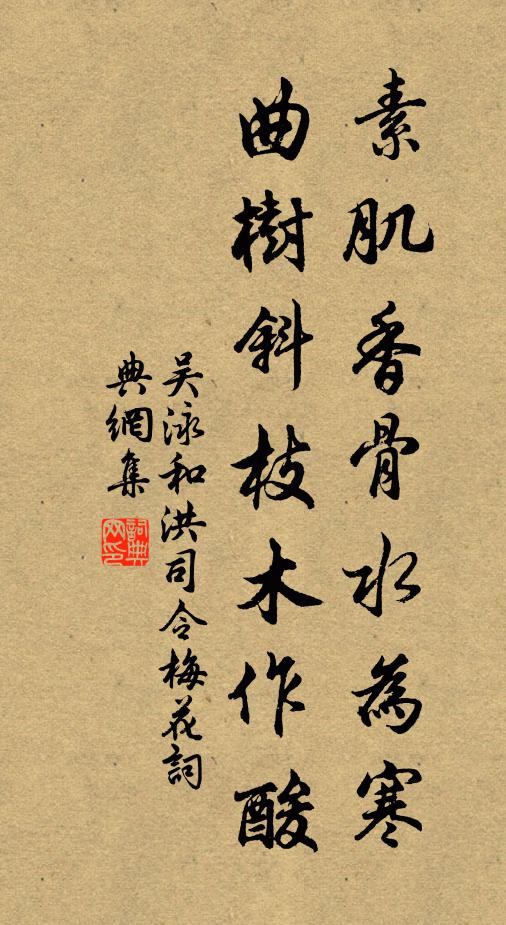 素肌香骨水為寒
曲樹斜枝木作酸
吴泳和洪司令梅花詞
典網集
詞典網印